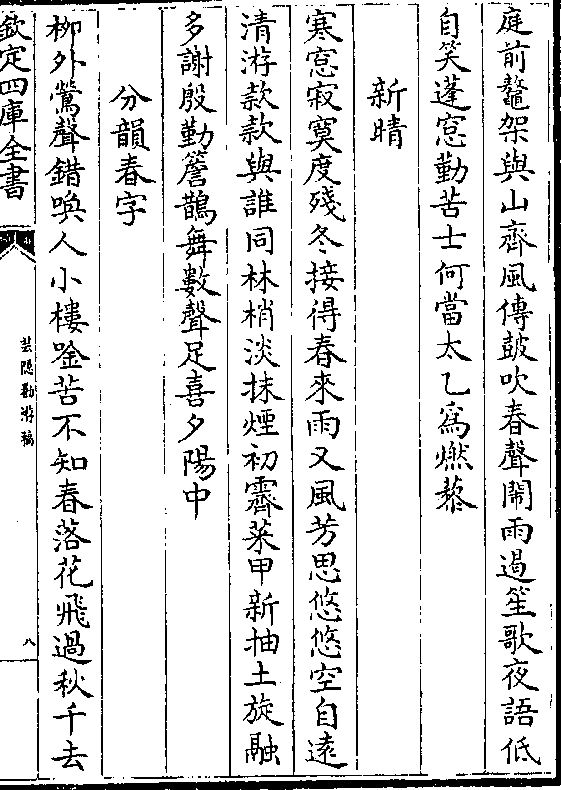 庭前鼇架與山齊風傳鼓吹春聲鬧雨過笙歌夜語低
自笑蓬窓勤苦士何當太乙為燃藜
新晴
寒窓寂寞度殘冬接得春來雨又風芳思悠悠空自遠
清游款款與誰同林梢淡抹煙初霽菜甲新抽土旋融
多謝殷勤簷鵲舞數聲足喜夕陽中
分韻春字
柳外鶯聲錯喚人小樓唫苦不知春落花飛過秋千去
欽定四庫全書
芸隱勌游稿
八